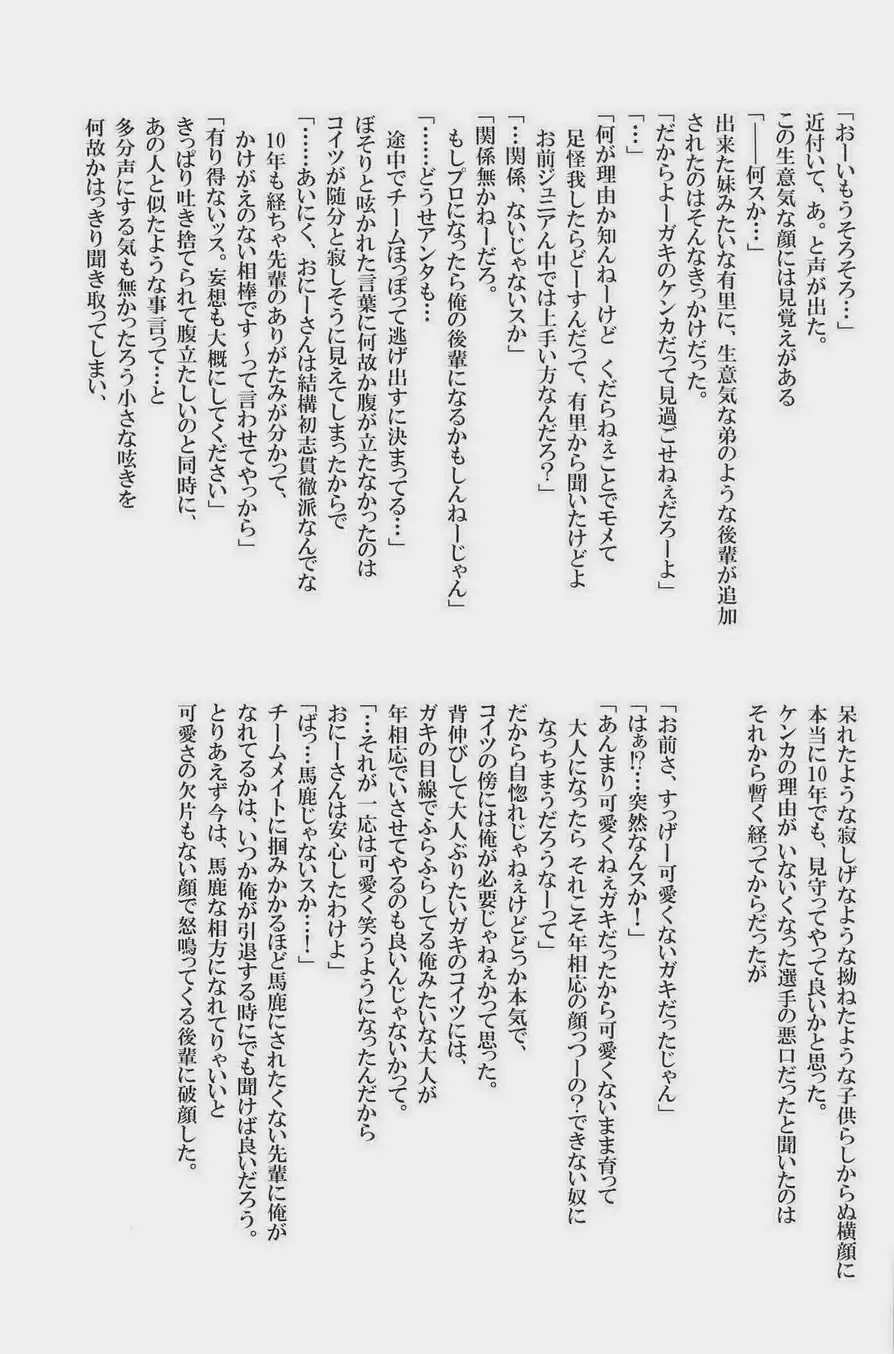 「おーいもうそろそろ…」
近付いて、あ。と声が出た。
この生意気な顔には見覚えがある
「――何スか…」
出来た妹みたいな有里に、生意気な弟のような後輩が追加
されたのはそんなきっかけだった。
「だからよーガキのケンカだって見過ごせねぇだろーよ」
「…」
「何が理由か知んねーけど　くだらねぇことでモメて
足怪我したらどーすんだって、有里から聞いたけどよ
お前ジュニアん中では上手い方なんだろ？」
「…関係、ないじゃないスか」
「関係無かねーだろ。
もしプロになったら俺の後輩になるかもしんねーじゃん」
「……どうせアンタも…
途中でチームほっぽって逃げ出すに決まってる…」
ぼそりと呟かれた言葉に何故か腹が立たなかったのは
コイツが随分と寂しそうに見えてしまったからで
「……あいにく、おにーさんは結構初志貫徹派なんでな
10年も経ちゃ先輩のありがたみが分かって、
かけがえのない相棒です～って言わせてやっから」
「有り得ないッス。妄想も大概にしてください」
きっぱり吐き捨てられて腹立たしいのと同時に、
あの人と似たような事言って…と
多分声にする気も無かったろう小さな呟きを
何故かはっきり聞き取ってしまい、
呆れたような寂しげなような拗ねたような子供らしからぬ横顔に
本当に10年でも、見守ってやって良いかと思った。
ケンカの理由が いなくなった選手の悪口だったと聞いたのは
それから暫く経ってからだったが
「お前さ、すっげー可愛くないガキだったじゃん」
「はぁ!?…突然なんスか！」
「あんまり可愛くねぇガキだったから可愛くないまま育って
大人になったら それこそ年相応の顔っつーの？できない奴に
なっちまうだろうなーって」
だから自惚れじゃねぇけどどっか本気で、
コイツの傍には俺が必要じゃねぇかって思った。
背伸びして大人ぶりたいガキのコイツには、
ガキの目線でふらふらしてる俺みたいな大人が
年相応でいさせてやるのも良いんじゃないかって。
「…それが 一応は可愛く笑うようになったんだから
おにーさんは安心したわけよ」
「ばっ…馬鹿じゃないスか…！」
チームメイトに掴みかかるほど馬鹿にされたくない先輩に俺が
なれてるかは、いつか俺が引退する時にでも聞けば良いだろう。
とりあえず今は、馬鹿な相方になれてりゃいいと
可愛さの欠片もない顔で怒鳴ってくる後輩に破顔した。